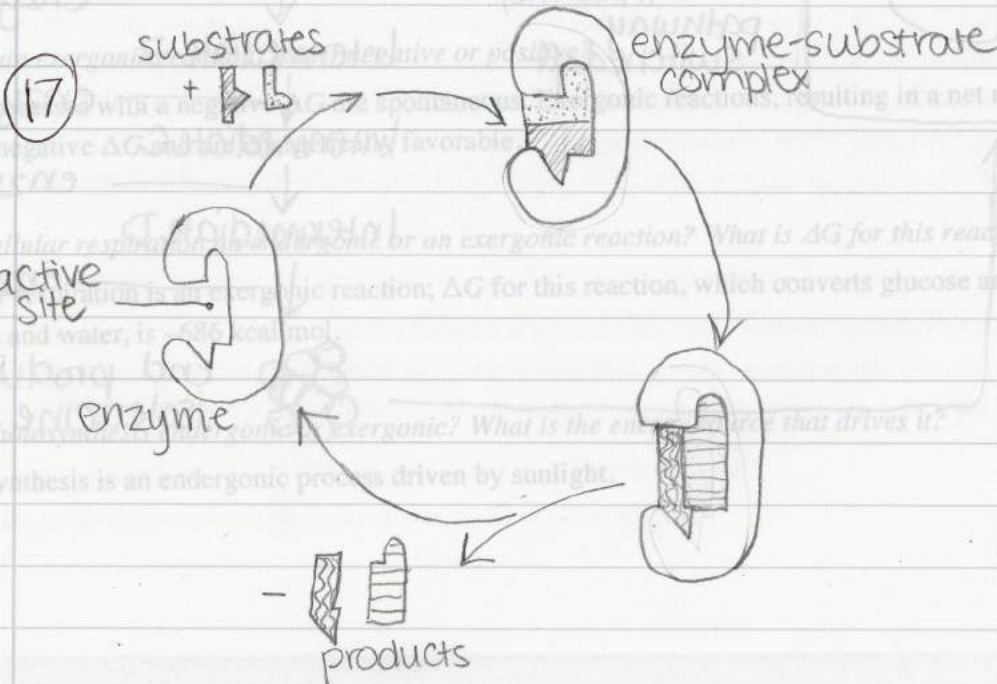 17
substrates
+
enzyme-substrate
complex
active
site
enzyme
-
products
an exergonic
negative or positive
with a negative ΔG are spontaneous.
reactions, resulting in a net
negative ΔG and are energetically favorable.
cellular respiration an endergonic or an exergonic reaction? What is ΔG for this reac
respiration is an exergonic reaction; ΔG for this reaction, which converts glucose an
and water, is -686 kcal/mol.
photosynthesis endergonic or exergonic? What is the energy source that drives it?
synthesis is an endergonic process driven by sunlight.
pathway
intermediate C
intermediate D
end product